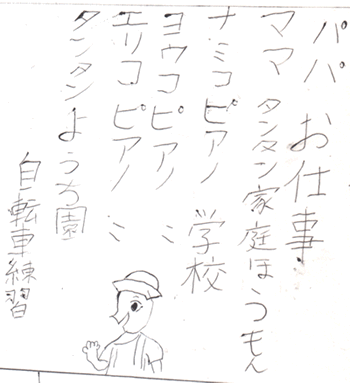 パパ お仕事
ママ タンタン家庭ほうもん
ナミコ ピアノ 学校
ヨウコ ピアノ 〃
エリコ ピアノ 〃
タンタン ようち園
自転車練習